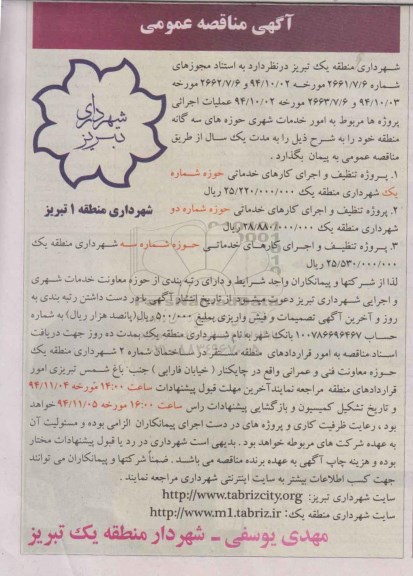 آگهی مناقصه عمومی
شهرداری منطقه یک تبریز درنظردارد به استناد مجوزهای
شماره ۲۶۶۱/۷/۶ مورخـه ۹۴/۱۰/۰۲ و ۲۶۶۲/۷/۶ مورخه
۹۴/۱۰/۰۳ و ۲۶۶۳/۷/۶ مورخه ۹۴/۱۰/۰۲ عملیات اجرائی
پروژه ها مربوط به امور خدمات شهری حوزه های سه گانه
منطقه خود را به شرح ذیل را به مدت یک سال از طریق
مناقصه عمومی به پیمان بگذارد .
۱. پـروژه تنظیف و اجرای کارهای خدماتی حوزه شماره
یک شهرداری منطقه یک ۲۵/۲۲۰/۰۰۰/۰۰۰ ریال
۲. پروژه تنظیف و اجرای کارهای خدماتی حوزه شماره دو
شهرداری منطقه یک ۲۸/۸۸۰/۰۰۰/۰۰۰ ریال
شهرداری تبریز
شهرداری منطقه ۱ تبریز
۳. پـروژه تنظیـف و اجـرای کارهـای خدماتـی حـوزه شماره سـه شهـرداری منطقه یک
۲۵/۵۳۰/۰۰۰/۰۰۰ ریال
لذا از شرکتها و پیمانکاران واجد شرایط و دارای رتبه بندی از حوزه معاونت خدمات شهـری
و اجرایی شهرداری تبریز دعوت میشود از تاریخ انتشار آگهی با در دست داشتن رتبه بندی به
روز و آخرین آگهی تصمیمات و فیش واریزی بمبلغ ۵۰۰/۰۰۰ ریال(پانصد هزار ریال) به شماره
حساب ۱۰۰۷۸۶۶۹۶۴۶۷ بانک شهر به نام شهرداری منطقه یک بمدت ده روز جهت دریافت
اسناد مناقصه به امور قراردادهای منطقه مستقر در ساختمان شماره ۲ شهرداری منطقه یک
حوزه معاونت فنی و عمرانی واقع در چایکنار ( خیابان فارابی ) جنب باغ شمس تبریزی امور
قراردادهای منطقه مراجعه نمایند.آخرین مهلت قبول پیشنهادات ساعت ۱۴:۰۰ مورخه ۹۴/۱۱/۰۴
و تاریخ تشکیل کمیسیون و بازگشایی پیشنهادات راس ساعت ۱۶:۰۰ مورخه ۹۴/۱۱/۰۵ خواهد
بود ، رعایت ظرفیت کاری و پروژه های در دست اجرای پیمانکاران الزامی بوده و مسئولیت آن
به عهده شرکت های مربوطه خواهد بود . بدیهی است شهرداری در رد یا قبول پیشنهادات مختار
بوده و هزینه چاپ آگهی به عهده برنده مناقصه می باشـد . ضمناً شرکتها و پیمانکاران می توانند
جهت کسب اطلاعات بیشتر به سایت اینترنتی شهرداری مراجعه نمایند .
سایت شهرداری تبریز: http://www.tabrizcity.org
سایت شهرداری منطقه یک: http://www.m1.tabriz.ir
مهدی یوسفی ـ شهردار منطقه یک تبریز